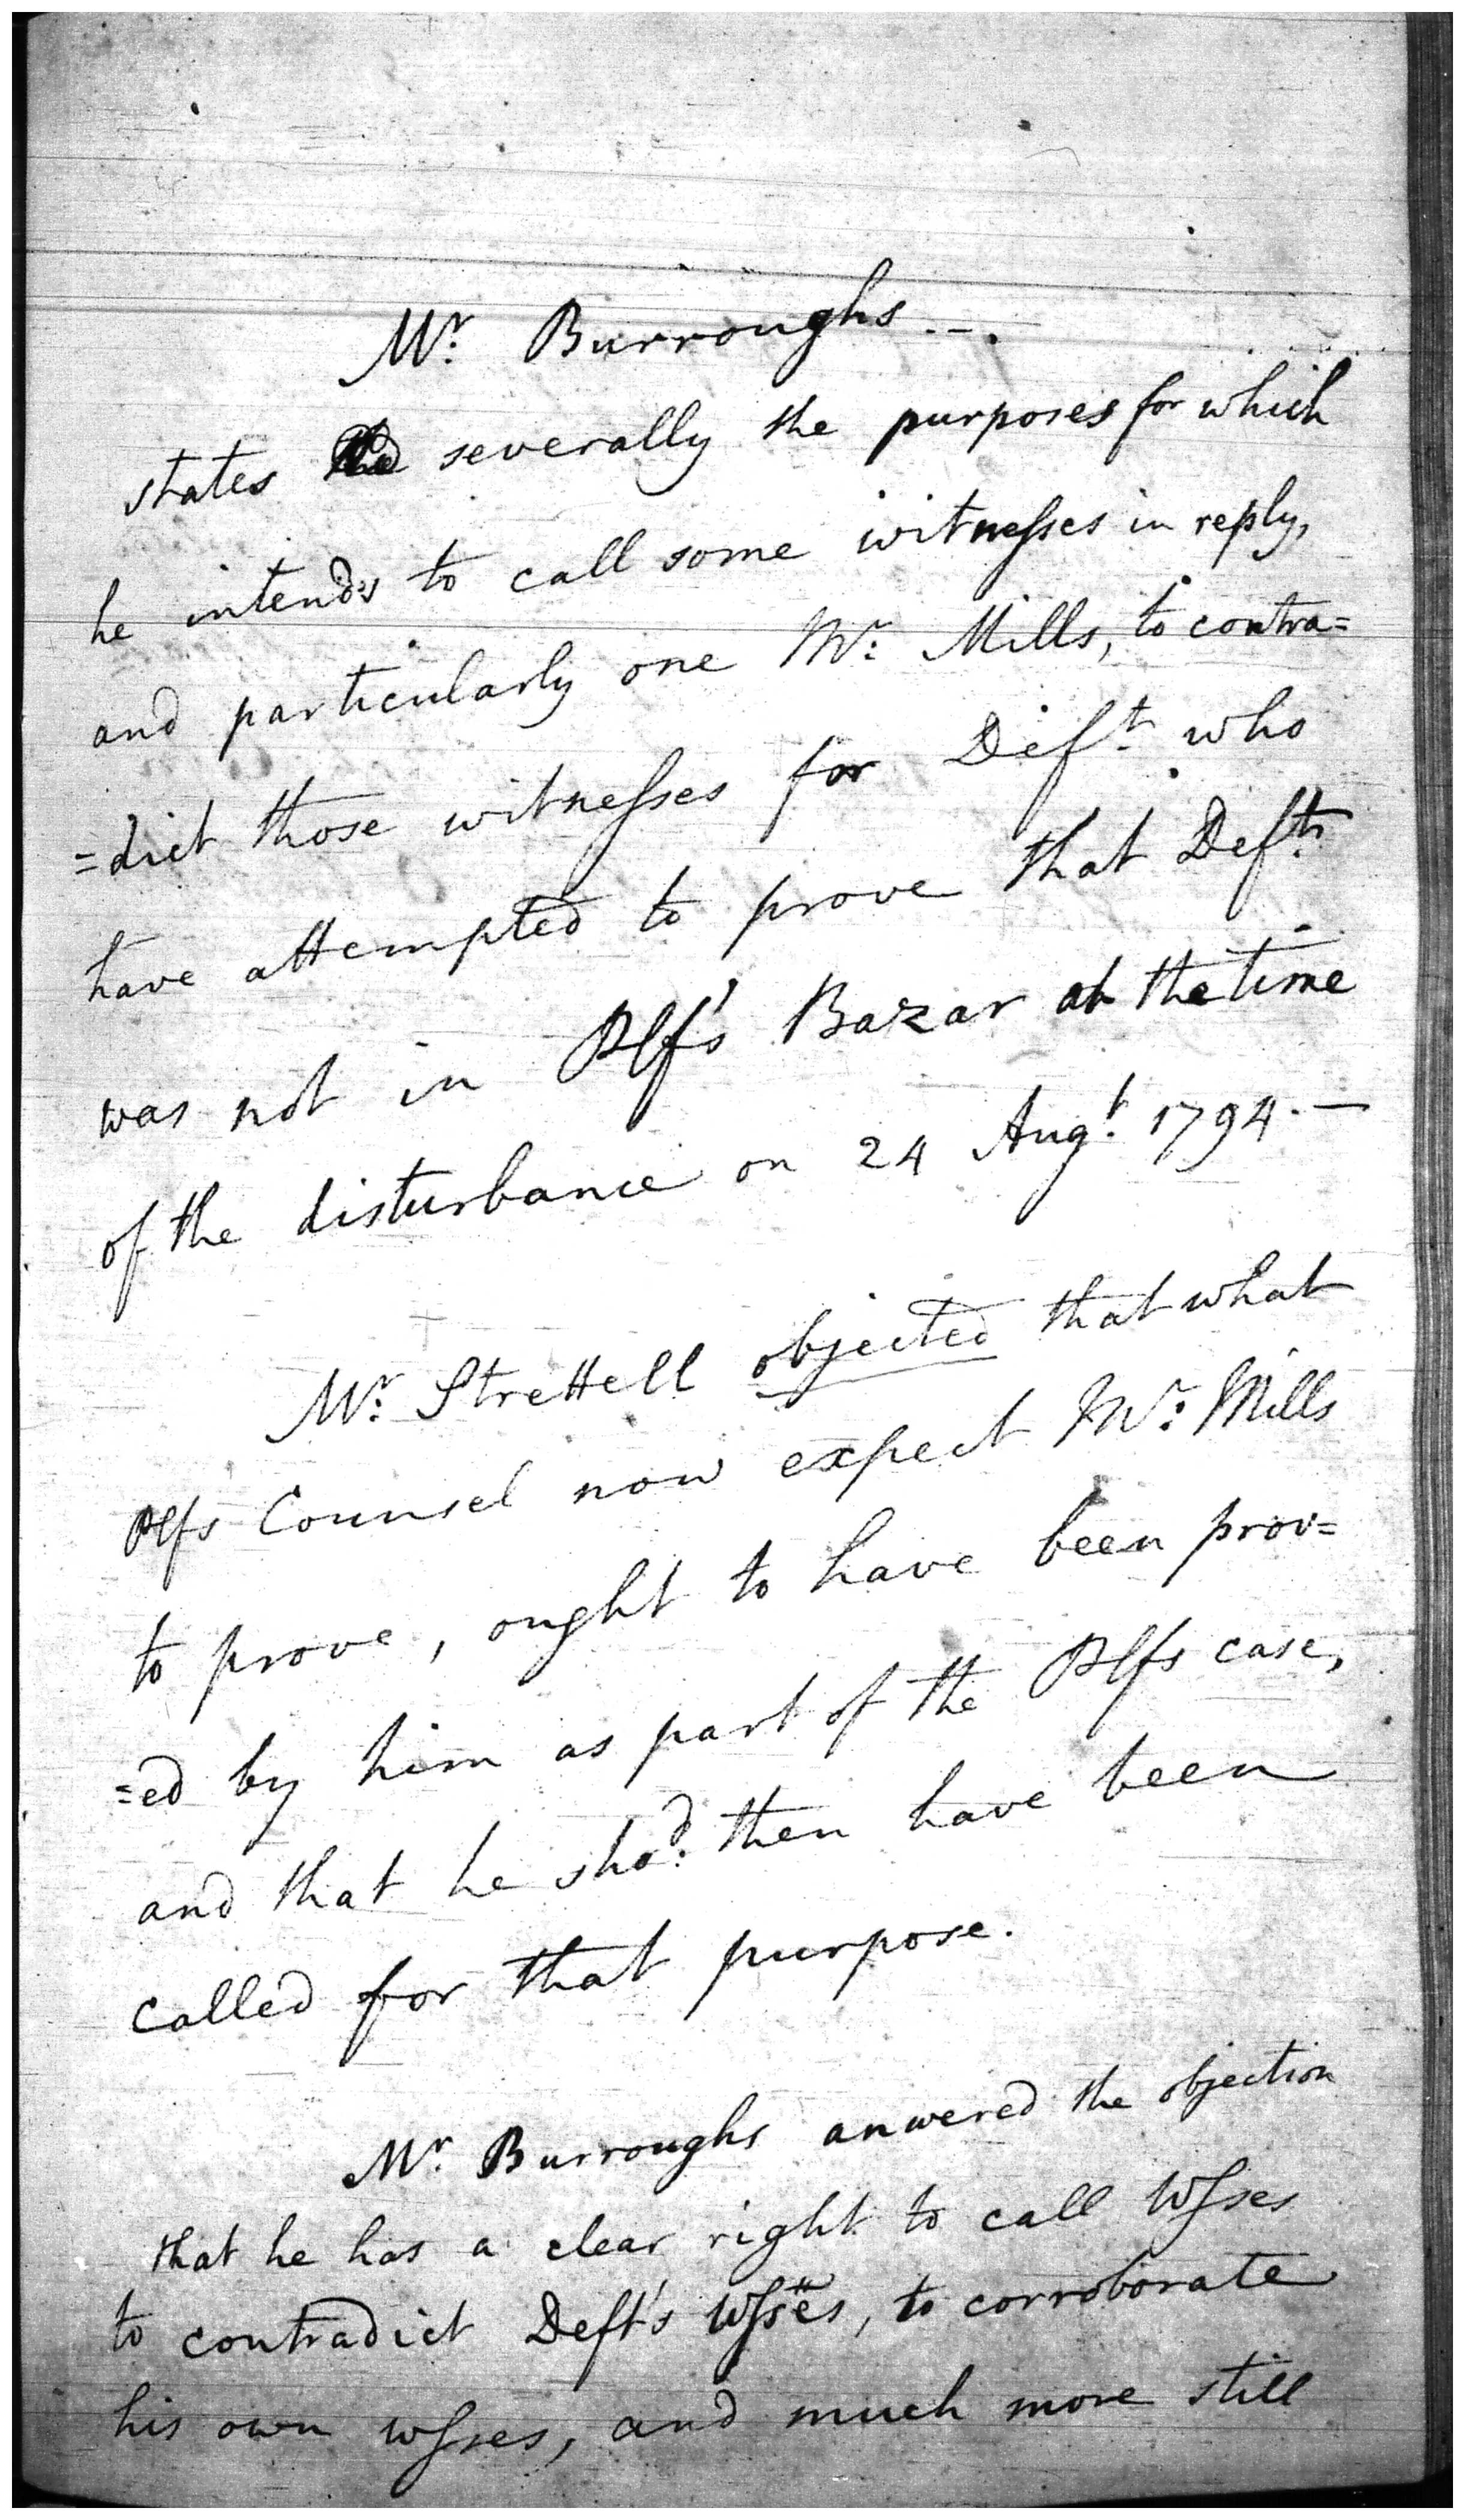 Mr. Burroughs ---.
states severally the purposes for which
he intends to call some witnesses in reply,
and particularly one Mr. Mills, to contra=
=dict those witnesses for Deft. who
have attempted to prove that Deft.
was not in Plf's Bazar at the time
of the disturbance on 24 Augt. 1794. —
Mr. Strettell objected that what
Plfs Counsel now expect Mr. Mills
to prove, ought to have been prov=
=ed by him as part of the Plfs case,
and that he shod. then have been
called for that purpose.
Mr. Burroughs anwered the objection
that he has a clear right to call Wsses
to contradict Deft's Wsses, to corroborate
his own wsses, and much more still